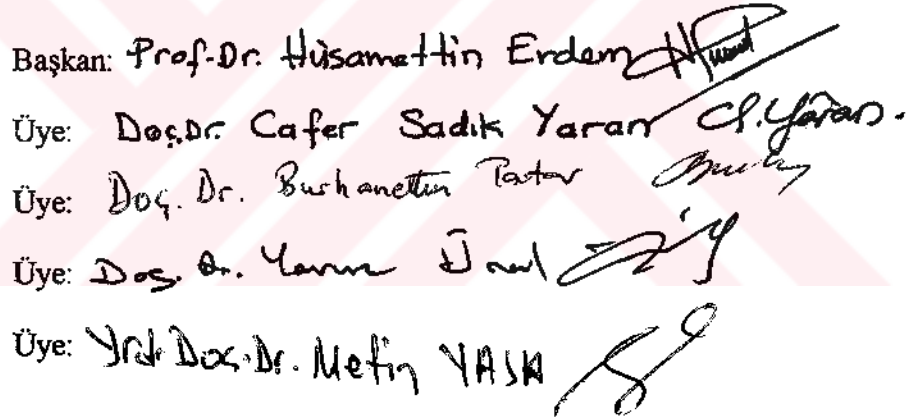 Başkan: Prof. Dr. Hüsamettin Erdem
Üye: Doç. Dr. Cafer Sadık Yaran C.S. Yaran.
Üye: Doç. Dr. Burhanettin Tatar
Üye: Doç. Dr. Yavuz Ünal
Üye: Yrd. Doç. Dr. Metin YASA